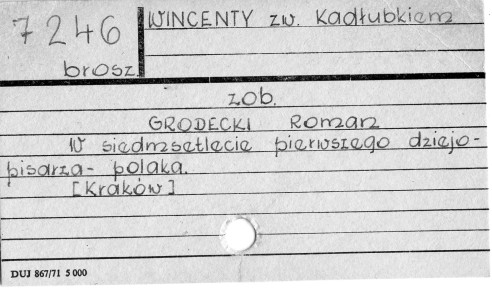 7246
brosz.
WINCENTY zw. Kadłubkiem
zob.
GRODECKI Roman
W siedmsetlecie pierwszego dziejo-
pisarza - polaka.
[Kraków]
DUJ 867/71 5 000